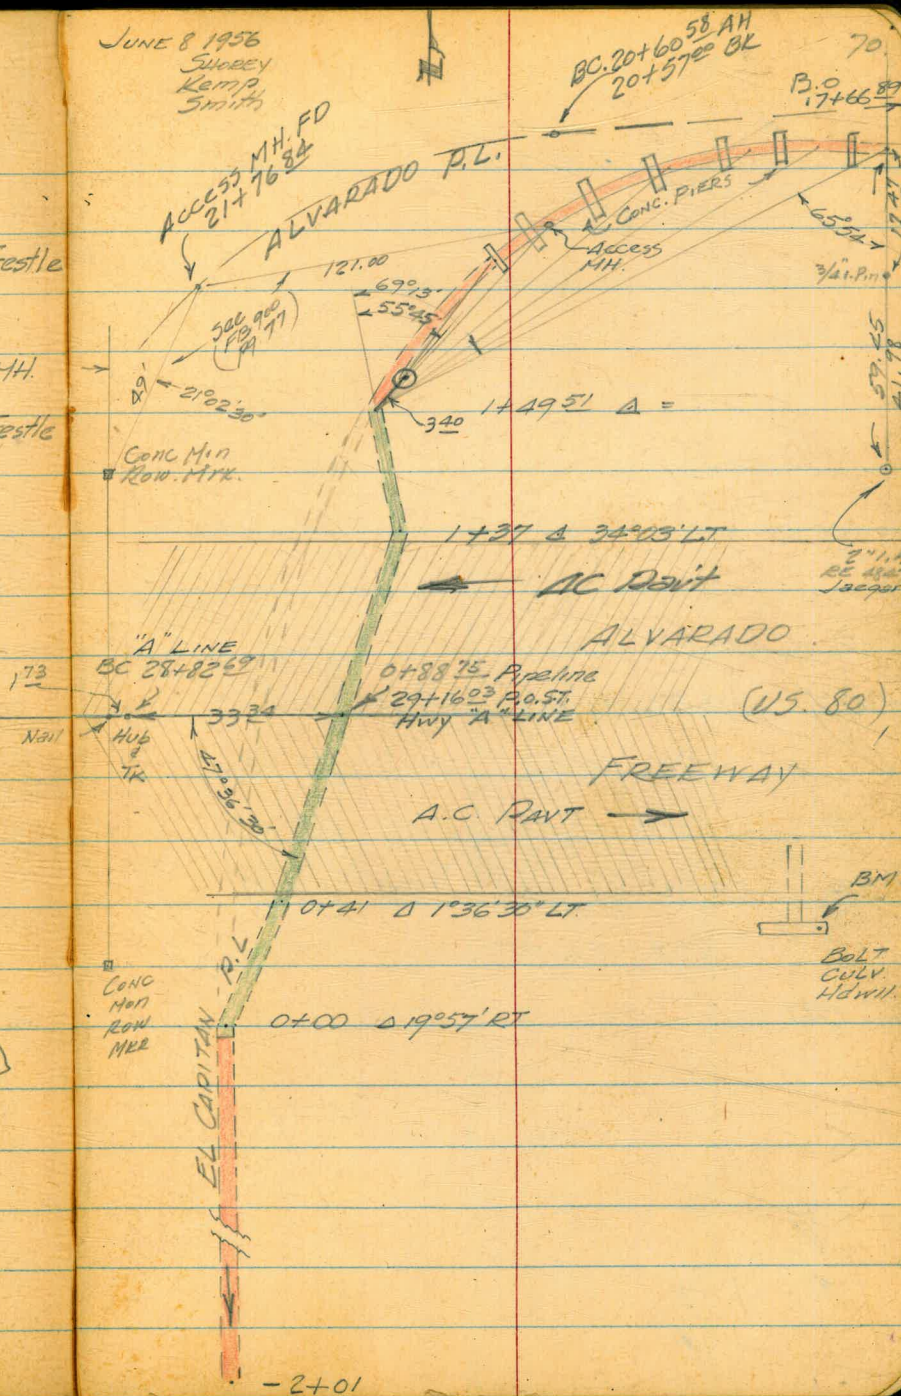 JUNE 8 1956
SHOREY
Kemp
Smith
70
BC. 20+60 58 AH
20+57 00 BK
B.O
17+66 89
ACCESS MH. FD
21+76 84
ALVARADO P.L.
CONC. PIERS
ACCESS
MH.
65°54'
3/4" I. Pin
estle
121.00
69°13'
55°45'
SEE
(FB 900
Pg 77)
MH.
49'
21°02'30"
59.25
3 40
1+49 51 Δ =
estle
Conc Mon
Row. Mrk.
1+37 Δ 34°03' LT
AC Pavt
Jaeger
ALVARADO
"A" LINE
BC 28+82 69
1 73
0+88 75 Pipeline
29+16 03 P.O.S.T.
Hwy "A" LINE
(US. 80)
33 34
Nail
Hub
&
TK
47°36'30"
FREEWAY
A.C. PAVT
BM
0+41 Δ 1°36'30" LT.
BOLT
CULV.
Hdwll.
CONC
Mon
ROW
MKR
0+00 Δ 19°57' RT
EL CAPITAN P.L
-2+01